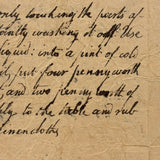 only brushing the parts of
ointly brushing it off. Use
liquid: into a pint of cold
, put four pennyworth
, and two pennyworth of
ly to the table and rub
linen cloth,